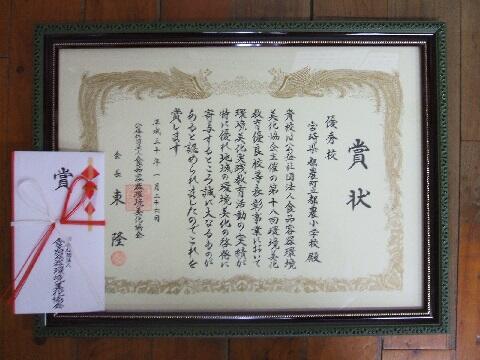 賞状
優秀校
宮崎県 都農町立都農小学校 殿
貴校は公益社団法人食品容器環境
美化協会主催の第十八回環境美化
教育優良校等表彰事業において
環境美化実践教育活動の実績が
特に優れ地域の環境美化の啓発に
寄与するところ誠に大なるものが
あると認められましたのでこれを
賞します
平成三十年 一月二十六日
公益社団法人食品容器環境美化協会
会長 東 隆
賞
公益社団法人
食品容器環境美化協会